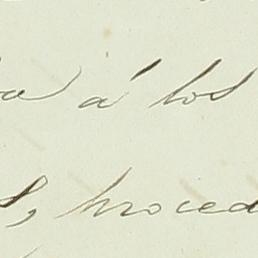 á los
proced